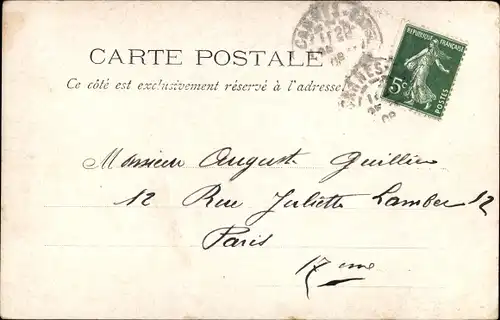 CARTE POSTALE
Ce côté est exclusivement réservé à l'adresse
REPUBLIQUE FRANÇAISE
5c
POSTES
CANNES
Monsieur Auguste Guillin
12 Rue Juliette Lamber 12
Paris
17 eme